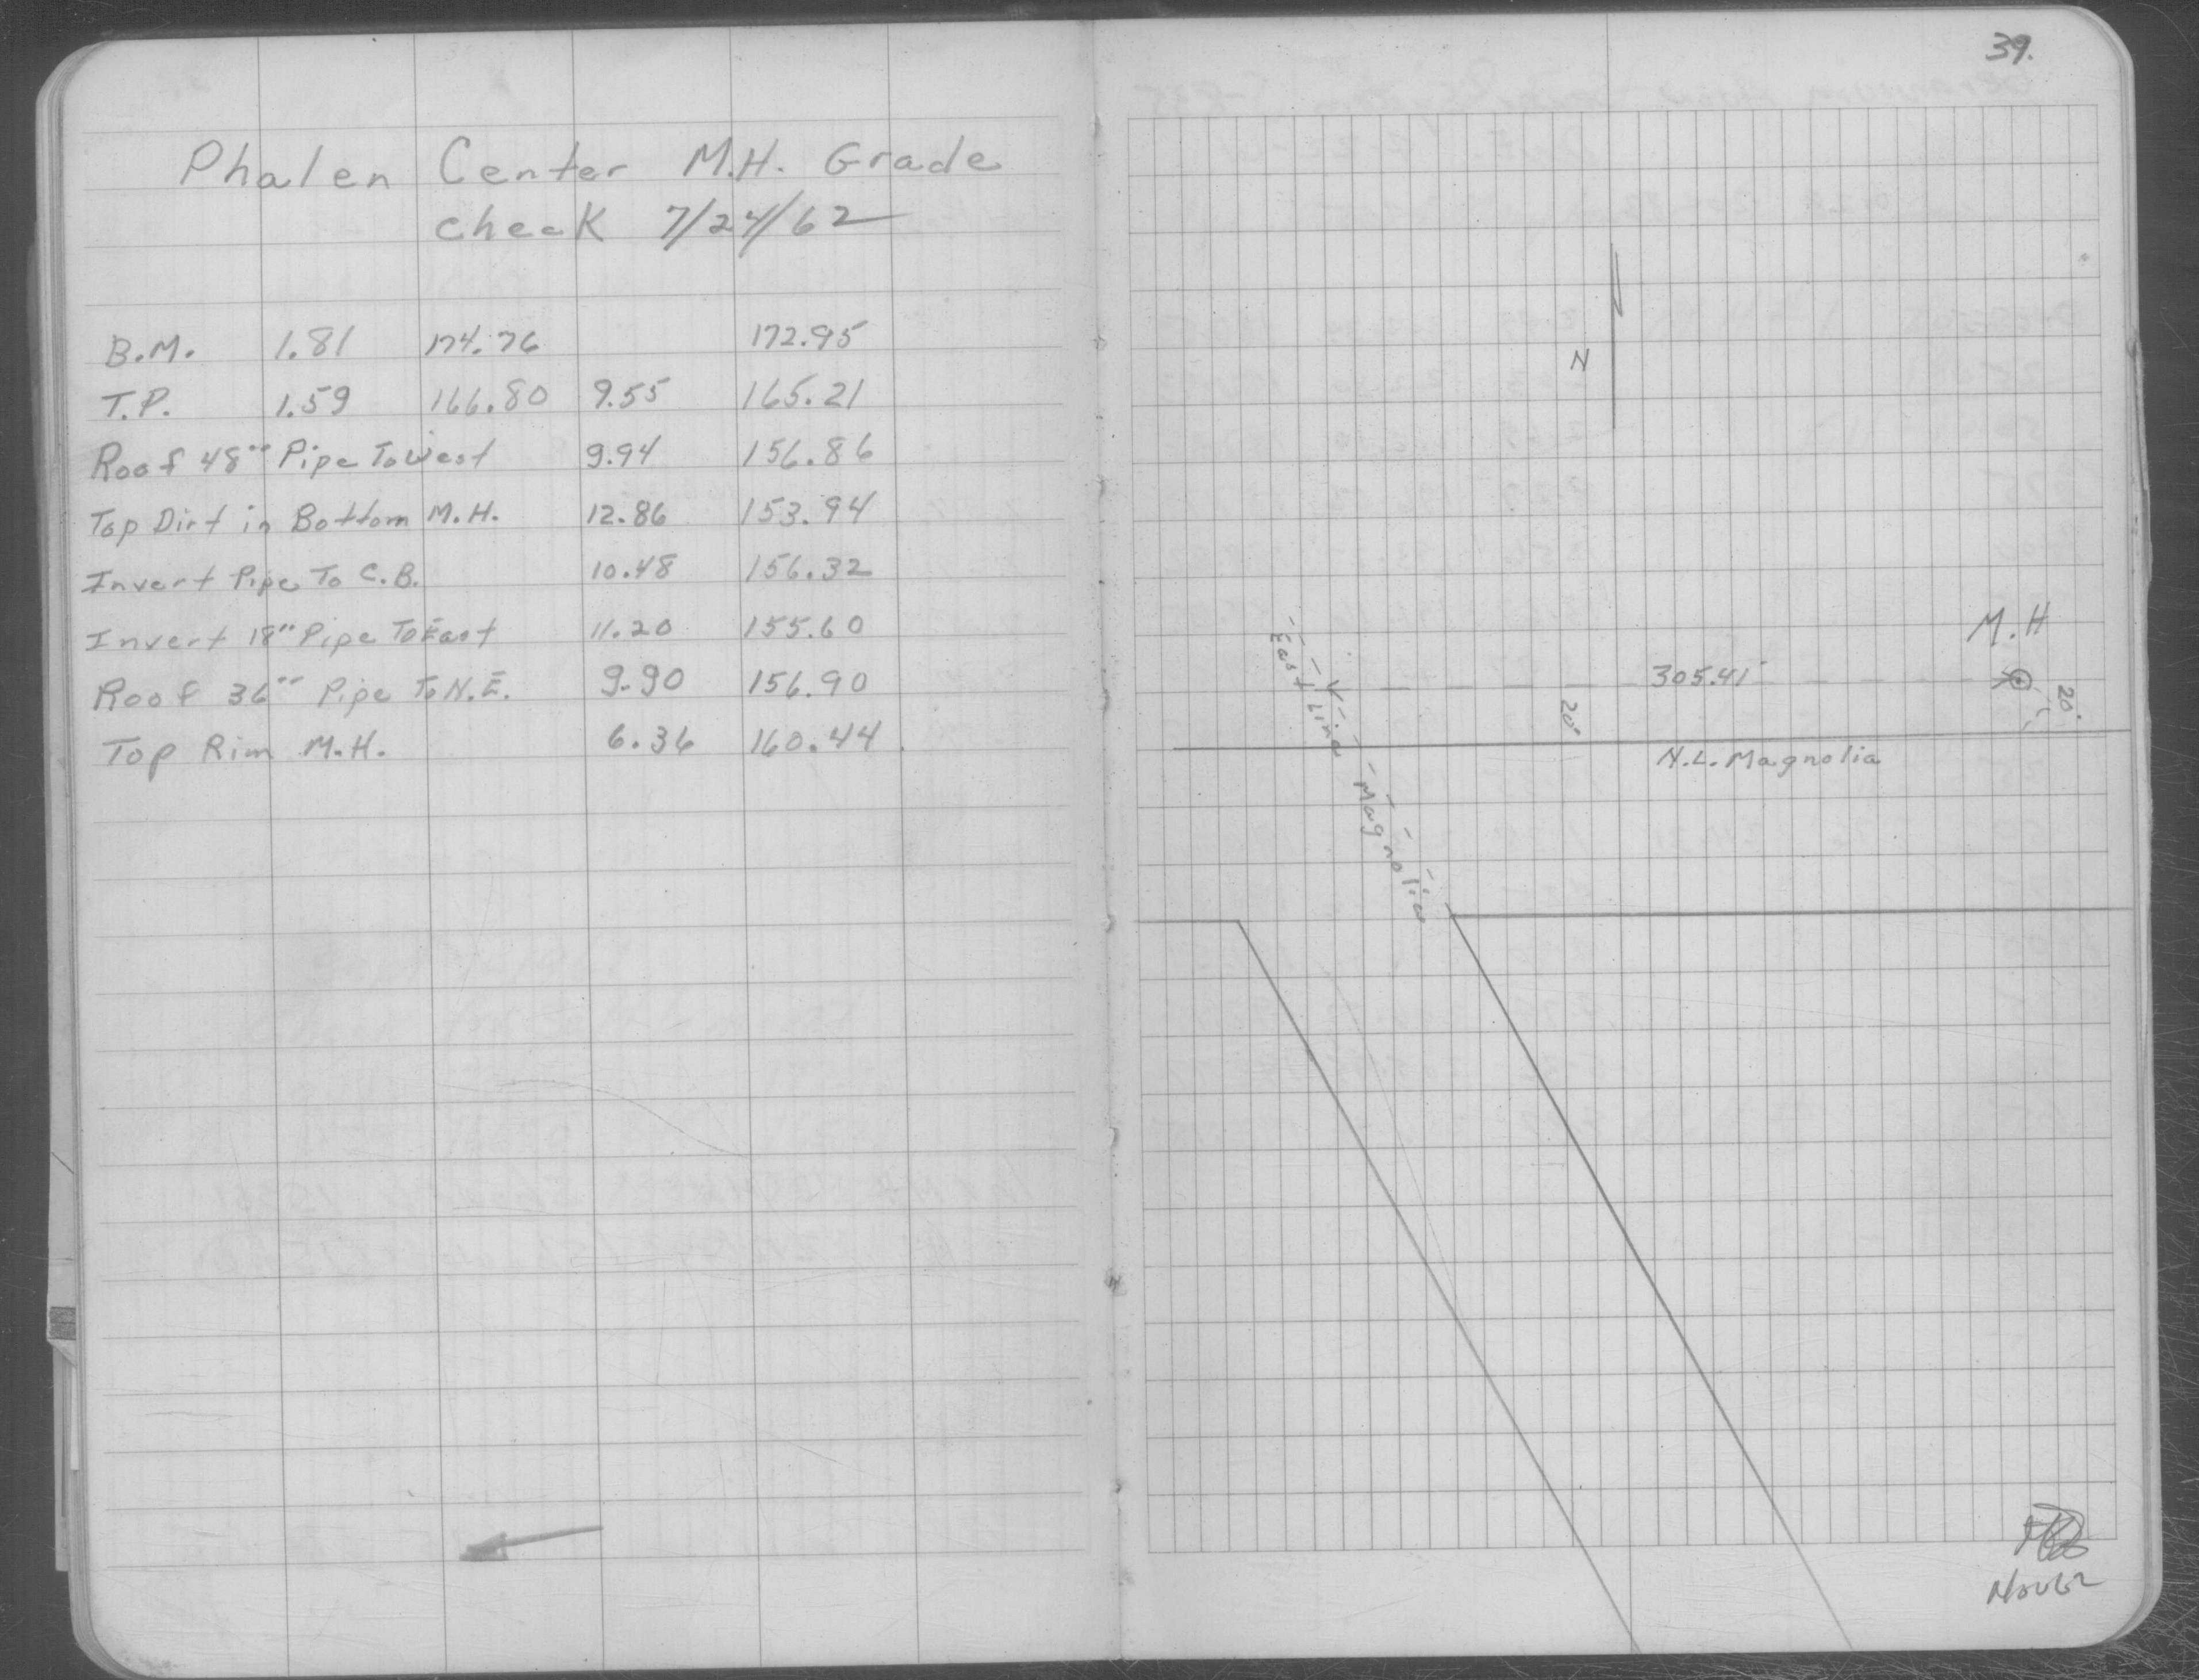 Phalen Center M.H. Grade
check 7/24/62
B.M. 1.81 174.76 172.95
T.P. 1.59 166.80 9.55 165.21
Roof 48" Pipe To West 9.94 156.86
Top Dirt in Bottom M.H. 12.86 153.94
Invert Pipe To C.B. 10.48 156.32
Invert 18" Pipe To East 11.20 155.60
Roof 36" Pipe To N.E. 9.90 156.90
Top Rim M.H. 6.36 160.44
39.
N
M.H
305.41'
20'
20'
East Line Magnolia
N.L. Magnolia